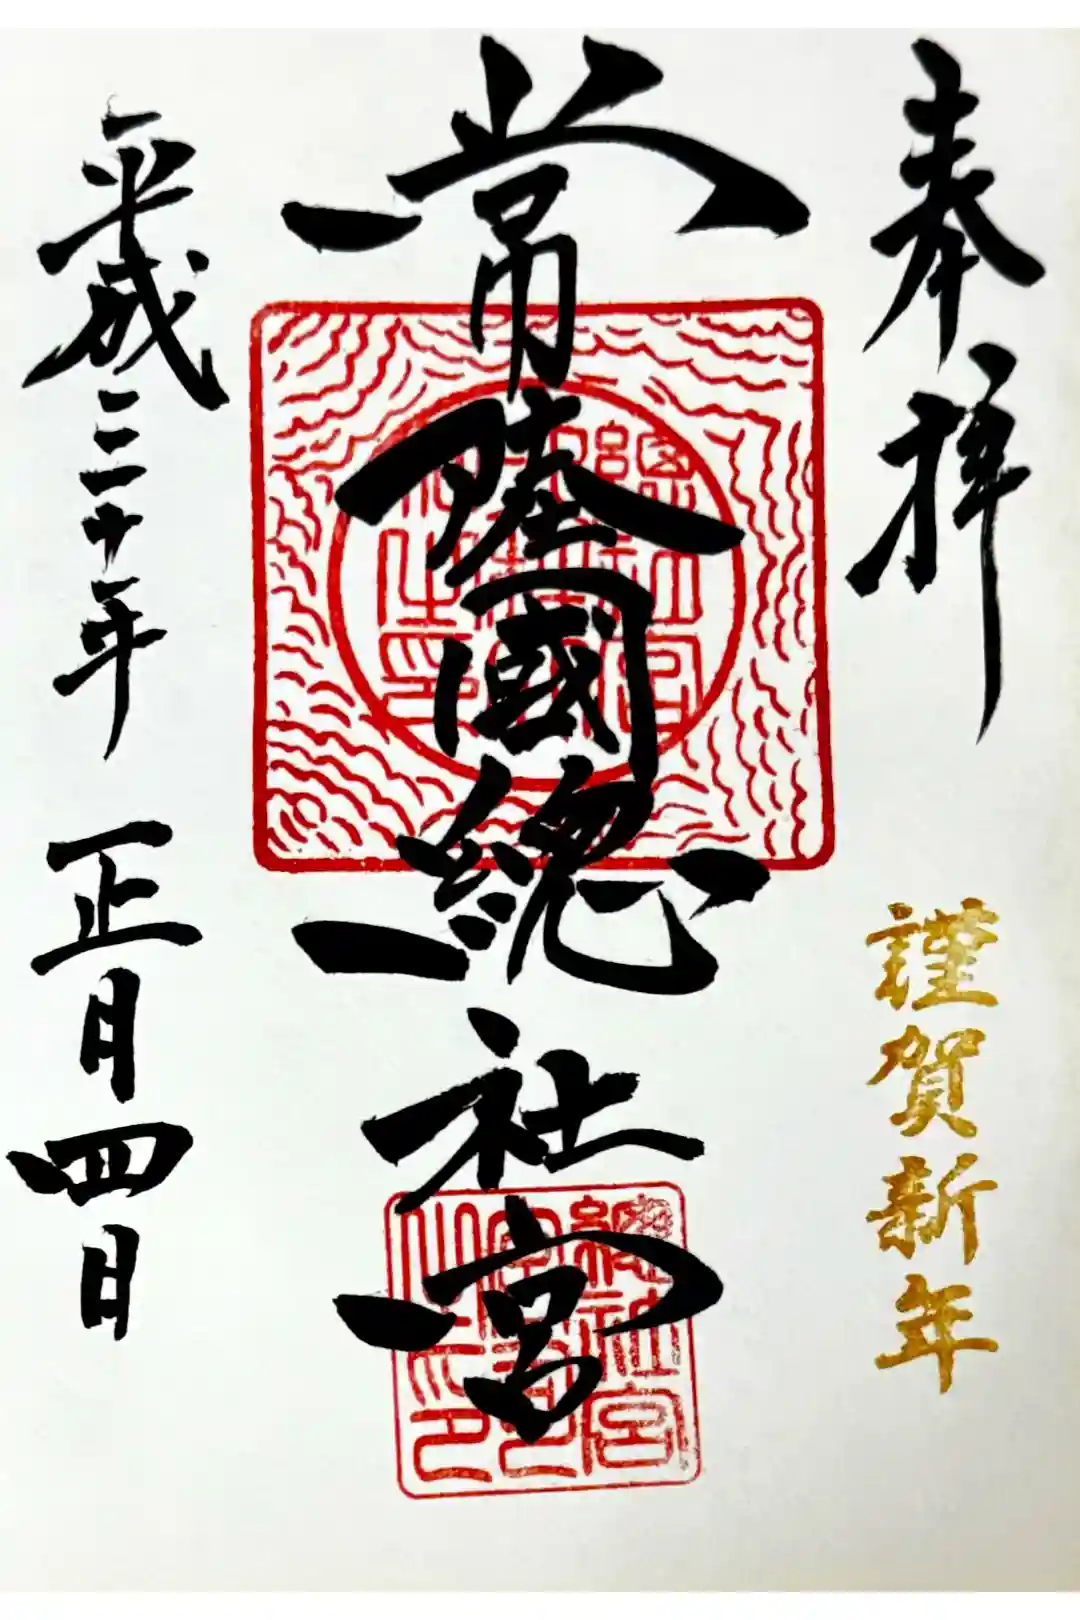 奉拝
謹賀新年
常陸國總社宮
總社宮
平成三十年
正月四日